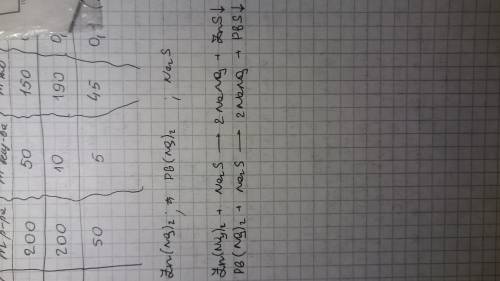 m р-ра | m вещ-ва | m
200 | 50 | 150 | 0,
200 | 10 | 190 | 0,
50 | 5 | 45 | 0,1
Zn(NO₃)₂ ; PB(NO₃)₂ ; Na₂S
Zn(NO₃)₂ + Na₂S → 2NaNO₃ + ZnS↓
PB(NO₃)₂ + Na₂S → 2NaNO₃ + PBS↓